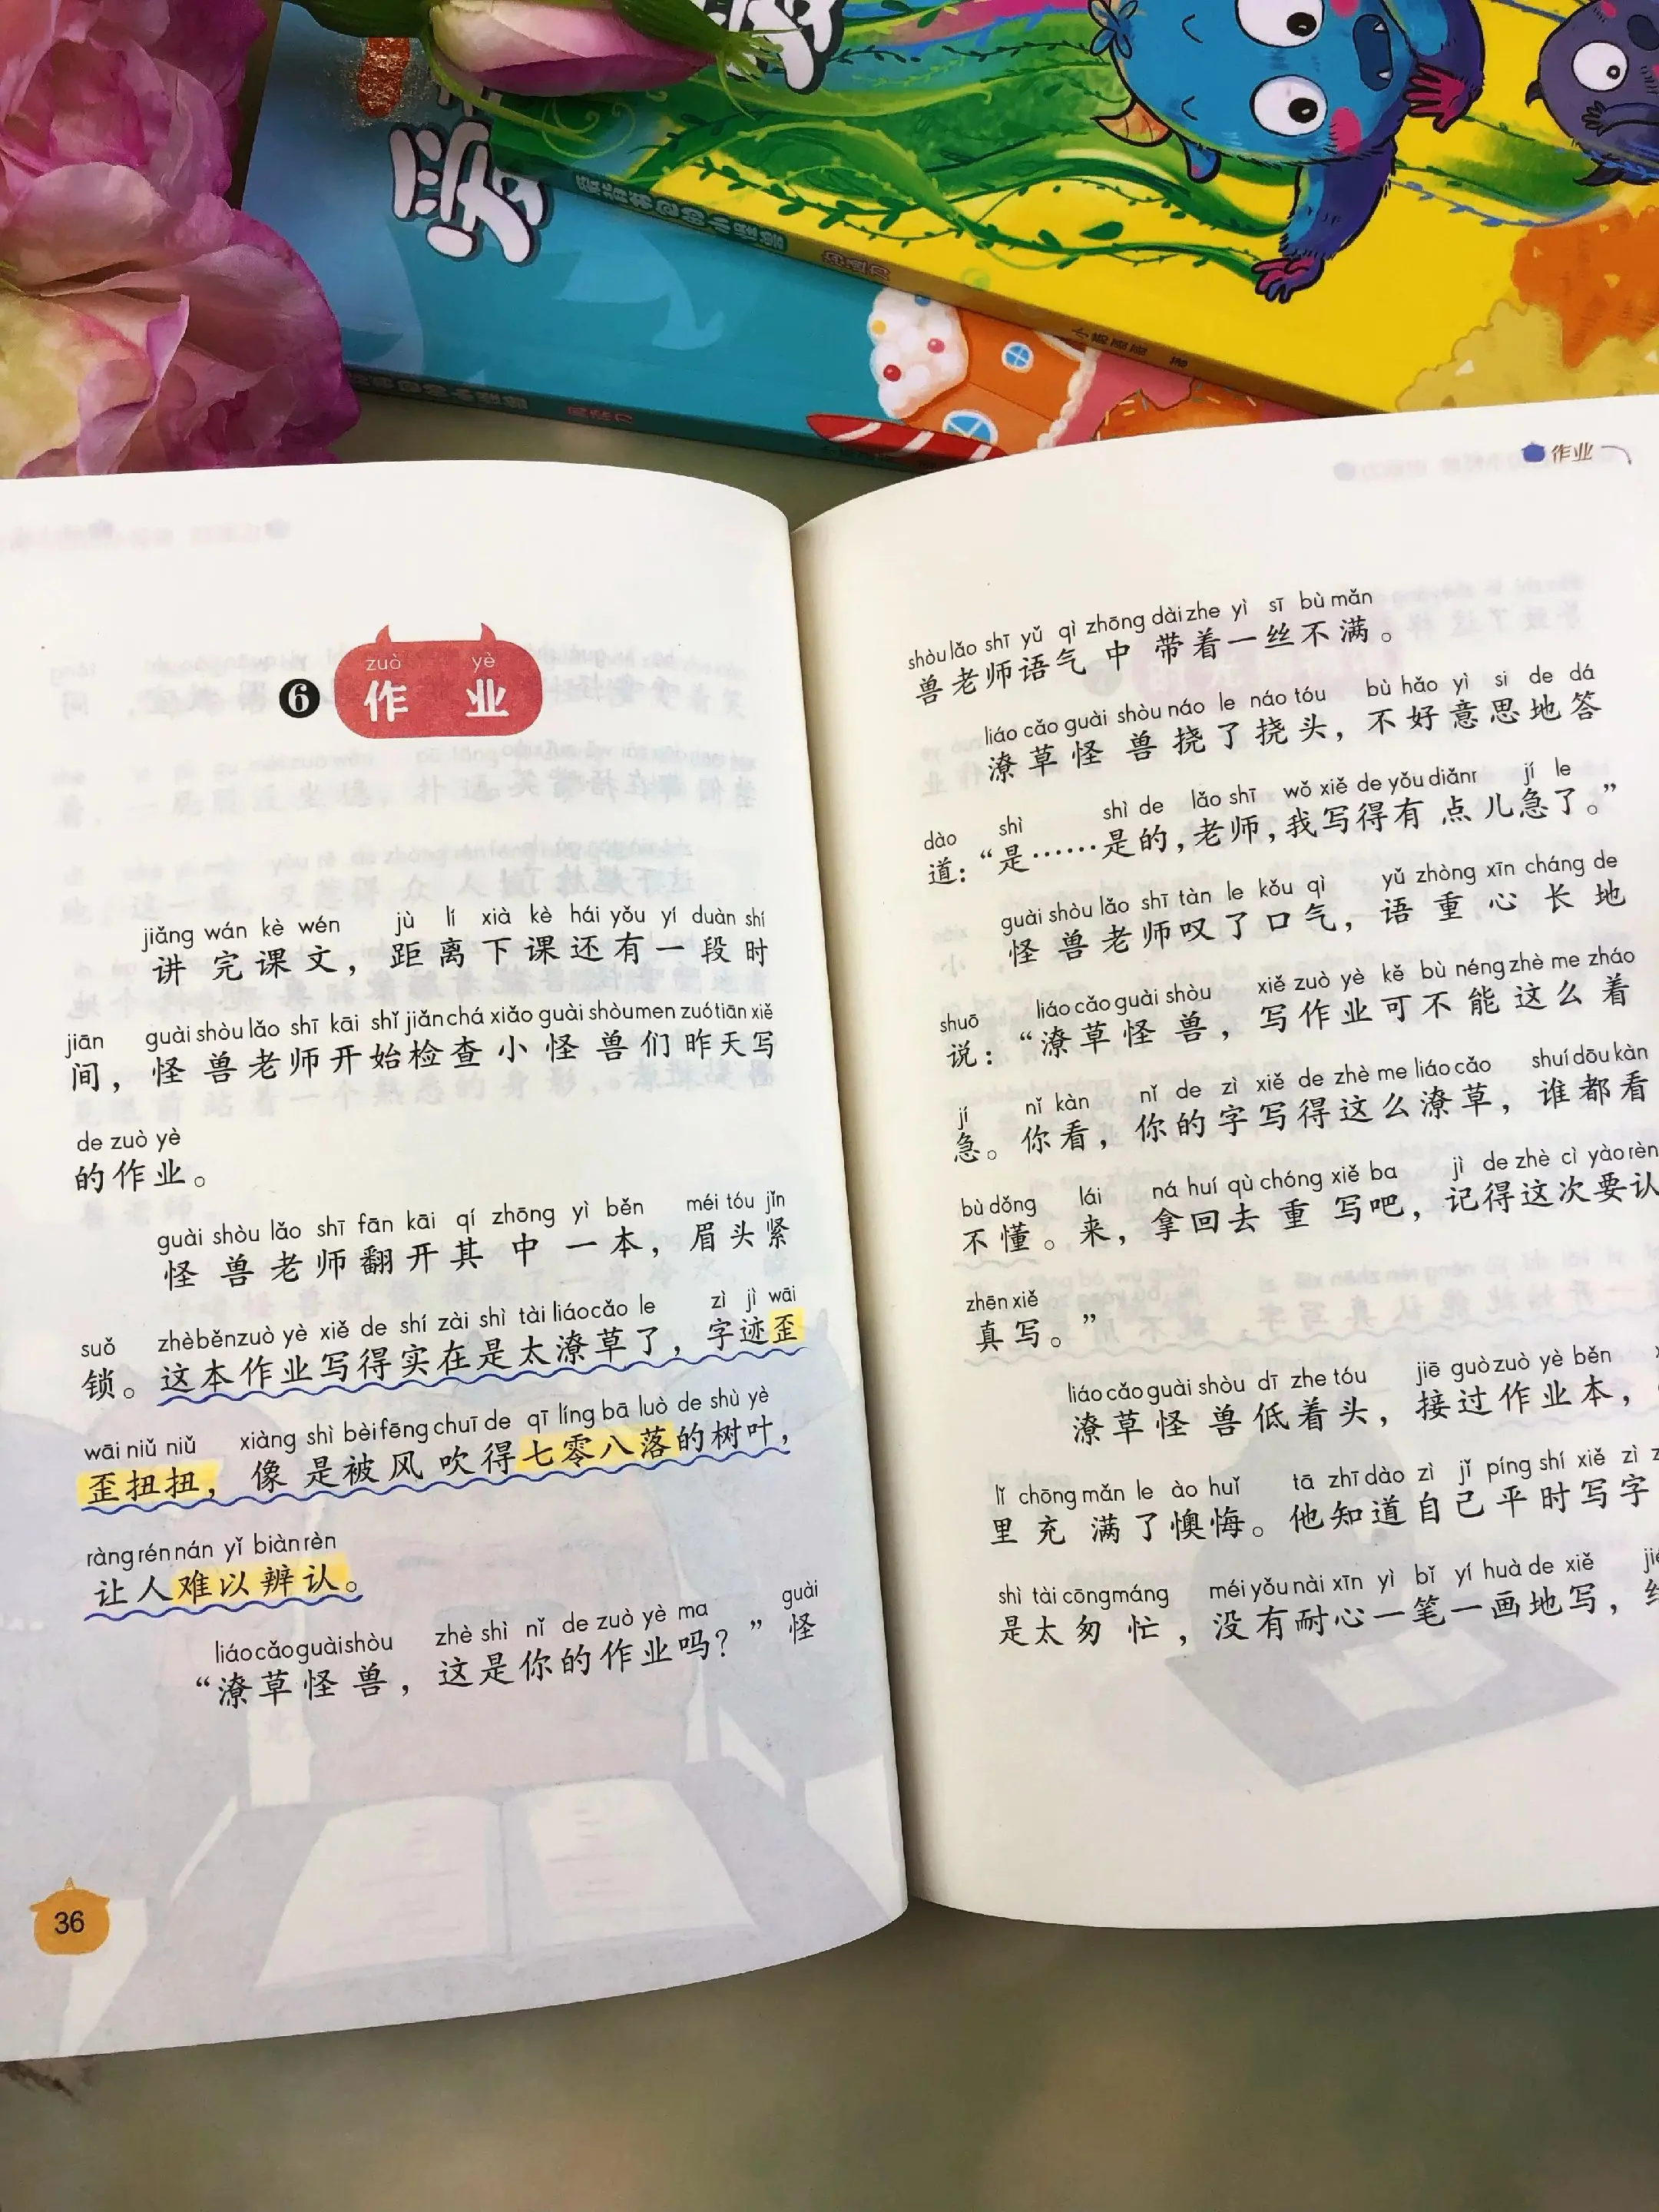 爱
装进书包的小怪兽 沟通力
小杨叔叔 著
作业
6
zuò yè
作 业
jiǎng wán kè wén jù lí xià kè hái yǒu yí duàn shí
讲完课文，距离下课还有一段时
jiān guài shòu lǎo shī kāi shǐ jiǎn chá xiǎo guài shòu men zuó tiān xiě
间，怪兽老师开始检查小怪兽们昨天写
de zuò yè
的作业。
guài shòu lǎo shī fān kāi qí zhōng yì běn méi tóu jǐn
怪兽老师翻开其中一本，眉头紧
suǒ zhè běn zuò yè xiě de shí zài shì tài liáo cǎo le zì jì wāi
锁。这本作业写得实在是太潦草了，字迹歪
wāi niǔ niǔ xiàng shì bèi fēng chuī de qī líng bā luò de shù yè
歪扭扭，像是被风吹得七零八落的树叶，
ràng rén nán yǐ biàn rèn
让人难以辨认。
liáo cǎo guài shòu zhè shì nǐ de zuò yè ma guài
“潦草怪兽，这是你的作业吗？”怪
36
shòu lǎo shī yǔ qì zhōng dài zhe yì sī bù mǎn
兽老师语气中带着一丝不满。
liáo cǎo guài shòu náo le náo tóu bù hǎo yì si de dá
潦草怪兽挠了挠头，不好意思地答
dào shì shì de lǎo shī wǒ xiě de yǒu diǎnr jí le
道：“是……是的，老师，我写得有点儿急了。”
guài shòu lǎo shī tàn le kǒu qì yǔ zhòng xīn cháng de
怪兽老师叹了口气，语重心长地
shuō liáo cǎo guài shòu xiě zuò yè kě bù néng zhè me zháo
说：“潦草怪兽，写作业可不能这么着
jí nǐ kàn nǐ de zì xiě de zhè me liáo cǎo shuí dōu kàn
急。你看，你的字写得这么潦草，谁都看
bù dǒng lái ná huí qù chóng xiě ba jì de zhè cì yào rèn
不懂。来，拿回去重写吧，记得这次要认
zhēn xiě
真写。”
liáo cǎo guài shòu dī zhe tóu jiē guò zuò yè běn
潦草怪兽低着头，接过作业本，
lǐ chōng mǎn le ào huǐ tā zhī dào zì jǐ píng shí xiě zì
里充满了懊悔。他知道自己平时写字
shì tài cōng máng méi yǒu nài xīn yì bǐ yí huà de xiě
是太匆忙，没有耐心一笔一画地写，